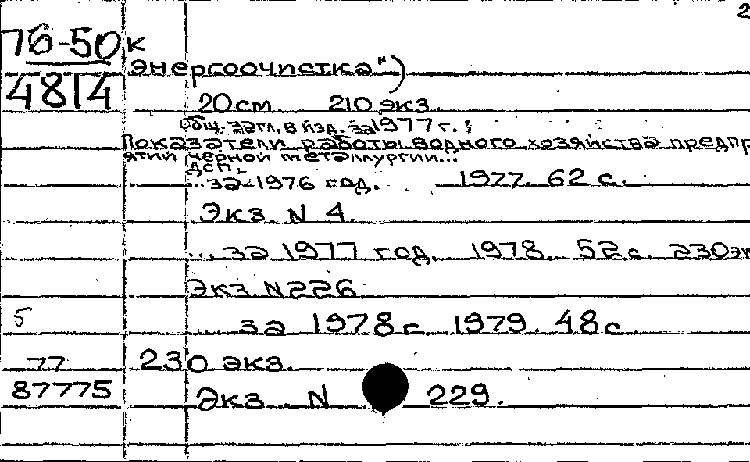 2
76-50к
4814
энергоочистка")
20 см. 210 экз.
Общ. загл. в изд. за 1977 г.:
Показатели работы водного хозяйства предпр
ятий черной металлургии...
ДСП.
...за 1976 год. 1977. 62 с.
Экз. N 4.
...за 1977 год. 1978. 52 с. 230 эк
Экз N 226
5
... за 1978 г. 1979. 48 с
77
230 экз.
87775
Экз. N 229.